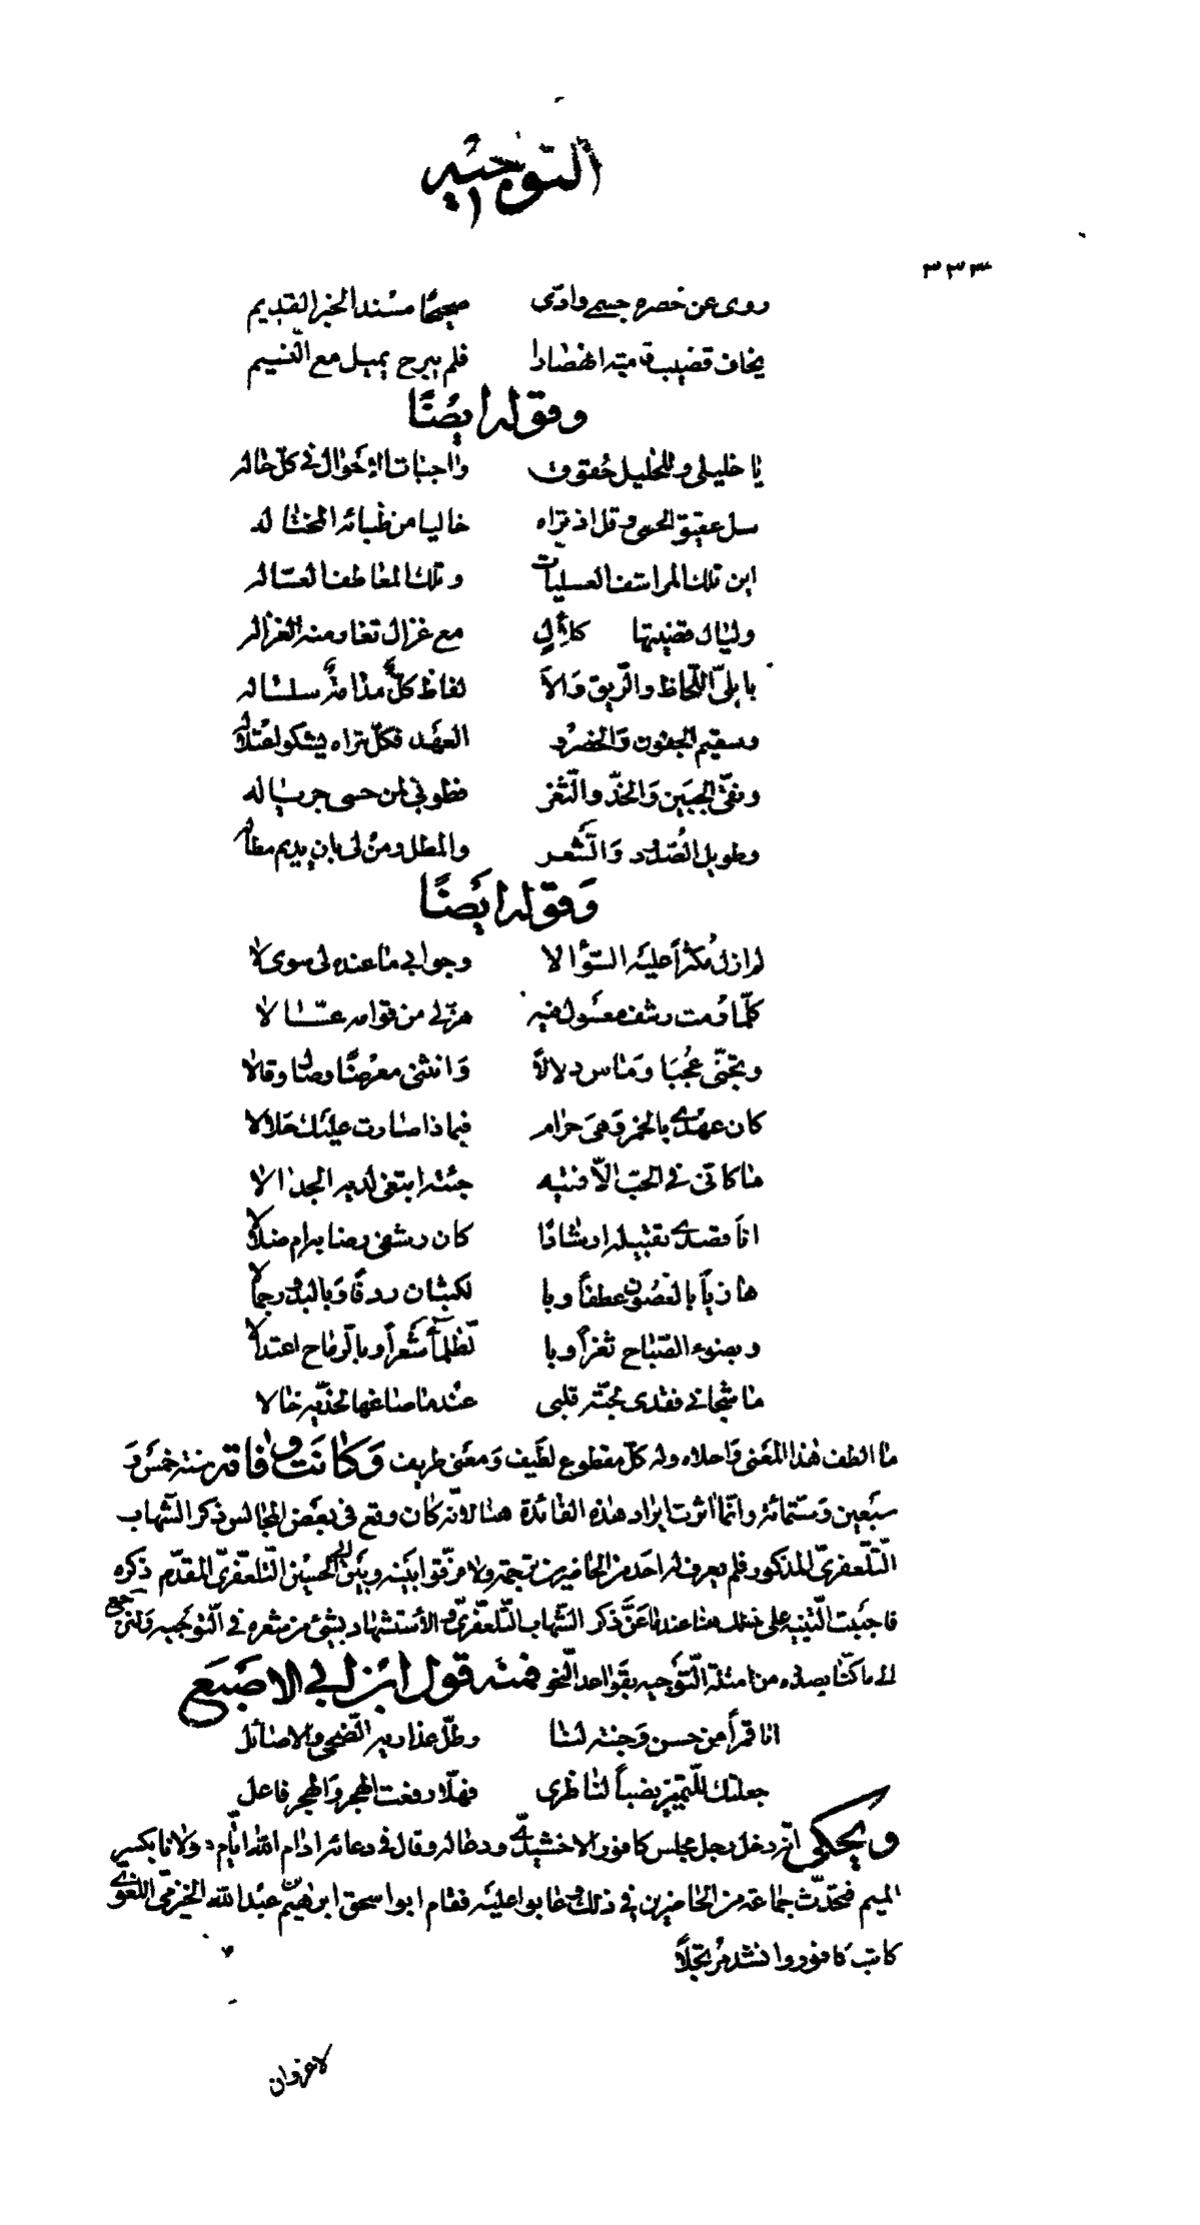 التوجيه
٣٣٣
روى عن خصره جسمي وادّى صحيحًا مسند الخبر القديم
يخاف قضيب قامته انهصارا فلم يبرح يميل مع النسيم
وقوله ايضًا
يا خليلي وللخليل حقوق واجبات الاحوال في كلّ حاله
سل عقيق الحمى وقل اذ تراه خاليا من ظبائه المختاله
اين تلك المراشف العسليات وتلك المعاطف العسّاله
وليال قضيتها كلآلٍ مع غزال تغار منه الغزاله
بابليّ اللّحاظ والرّيق والا لفاظ كلّ مدامة سلساله
وسقيم الجفون والخصر و العهد فكلّ تراه يشكو اعتلاله
ونقيّ الجبين والخدّ والثّغر فطوبى لمن حسى جرياله
وطويل الصّدود والشّعر والمطل ومن لي بان يديم مطاله
وقوله ايضًا
لم ازل مكثراً عليه السّؤالا وجوابي ما عنده لي سوى لا
كلّما رمت رشف معسول فيه هزّ لي من قوامه عسّالا
وتجنّى عُجبا وماس دلالاً وانثنى معرضًا وصال وقالا
كان عهدي بالخمر وهي حرام فبماذا صارت عليك حلالا
ما كاتي في الحبّ الاّ فتيه جئته ابتغي لديه الجدالا
انا قصدي تقبيله ارشادًا كان رشفي رضابه ام ضلالا
هازياً بالغصون عطفاً وبا لكثبان ردفًا وبالبدر جمالا
وبضوء الصّباح ثغراً وبا لظلماء شعراً وبالرماح اعتدالا
ما شجاني فقدي محبّة قلبي عندما صاغها لخدّيه خالا
ما الطف هذا المعنى واحلاه وله كلّ مقطوع لطيف ومعنى طريف وكانت وفاته سنة خمس و
سبعين وستمائة وانّما اثرت ايراد هذه الفائدة هنا لانّه كان وقع في بعض المجالس ذكر الشّهاب
التّلّعفريّ المذكور فلم يعرف له احد من الحاضرين ترجمة ولا فرّقوا بينه وبين ابي الحسين التّلعّفريّ المقدّم ذكره
فاحببت التّنبيه على ذلك هنا عندما عنّ ذكر الشّهاب التّلعّفريّ والاستشهاد بشيء من شعره في التّوجيه ولنرجع
الى ما كنّا بصدده من امثلة التّوجيه بقواعد النّحو فمنه قول ابن ابي الاصبع
ايا قمراً من حسن وجنته لنا وظلّ عذاريه الضّحى والاصائل
جعلتك للتّمييز نصباً لناظري فهلّا رفعت الهجر والهجر فاعل
ويحكى انّه دخل رجل مجلس كافور الاخشيديّ ودعا له وقال في دعائه ادام الله ايّام مولانا بكسر
الميم فتحدّث جماعة من الحاضرين في ذلك وعابوا عليه فقام ابو اسحق ابرهيم بن عبد الله اللغويّ
كاتب كافور وانشد مرتجلاً
لا غرو ان